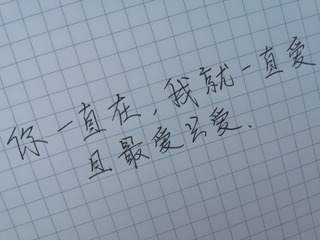 你一直在，我就一直爱
且最爱云爱.